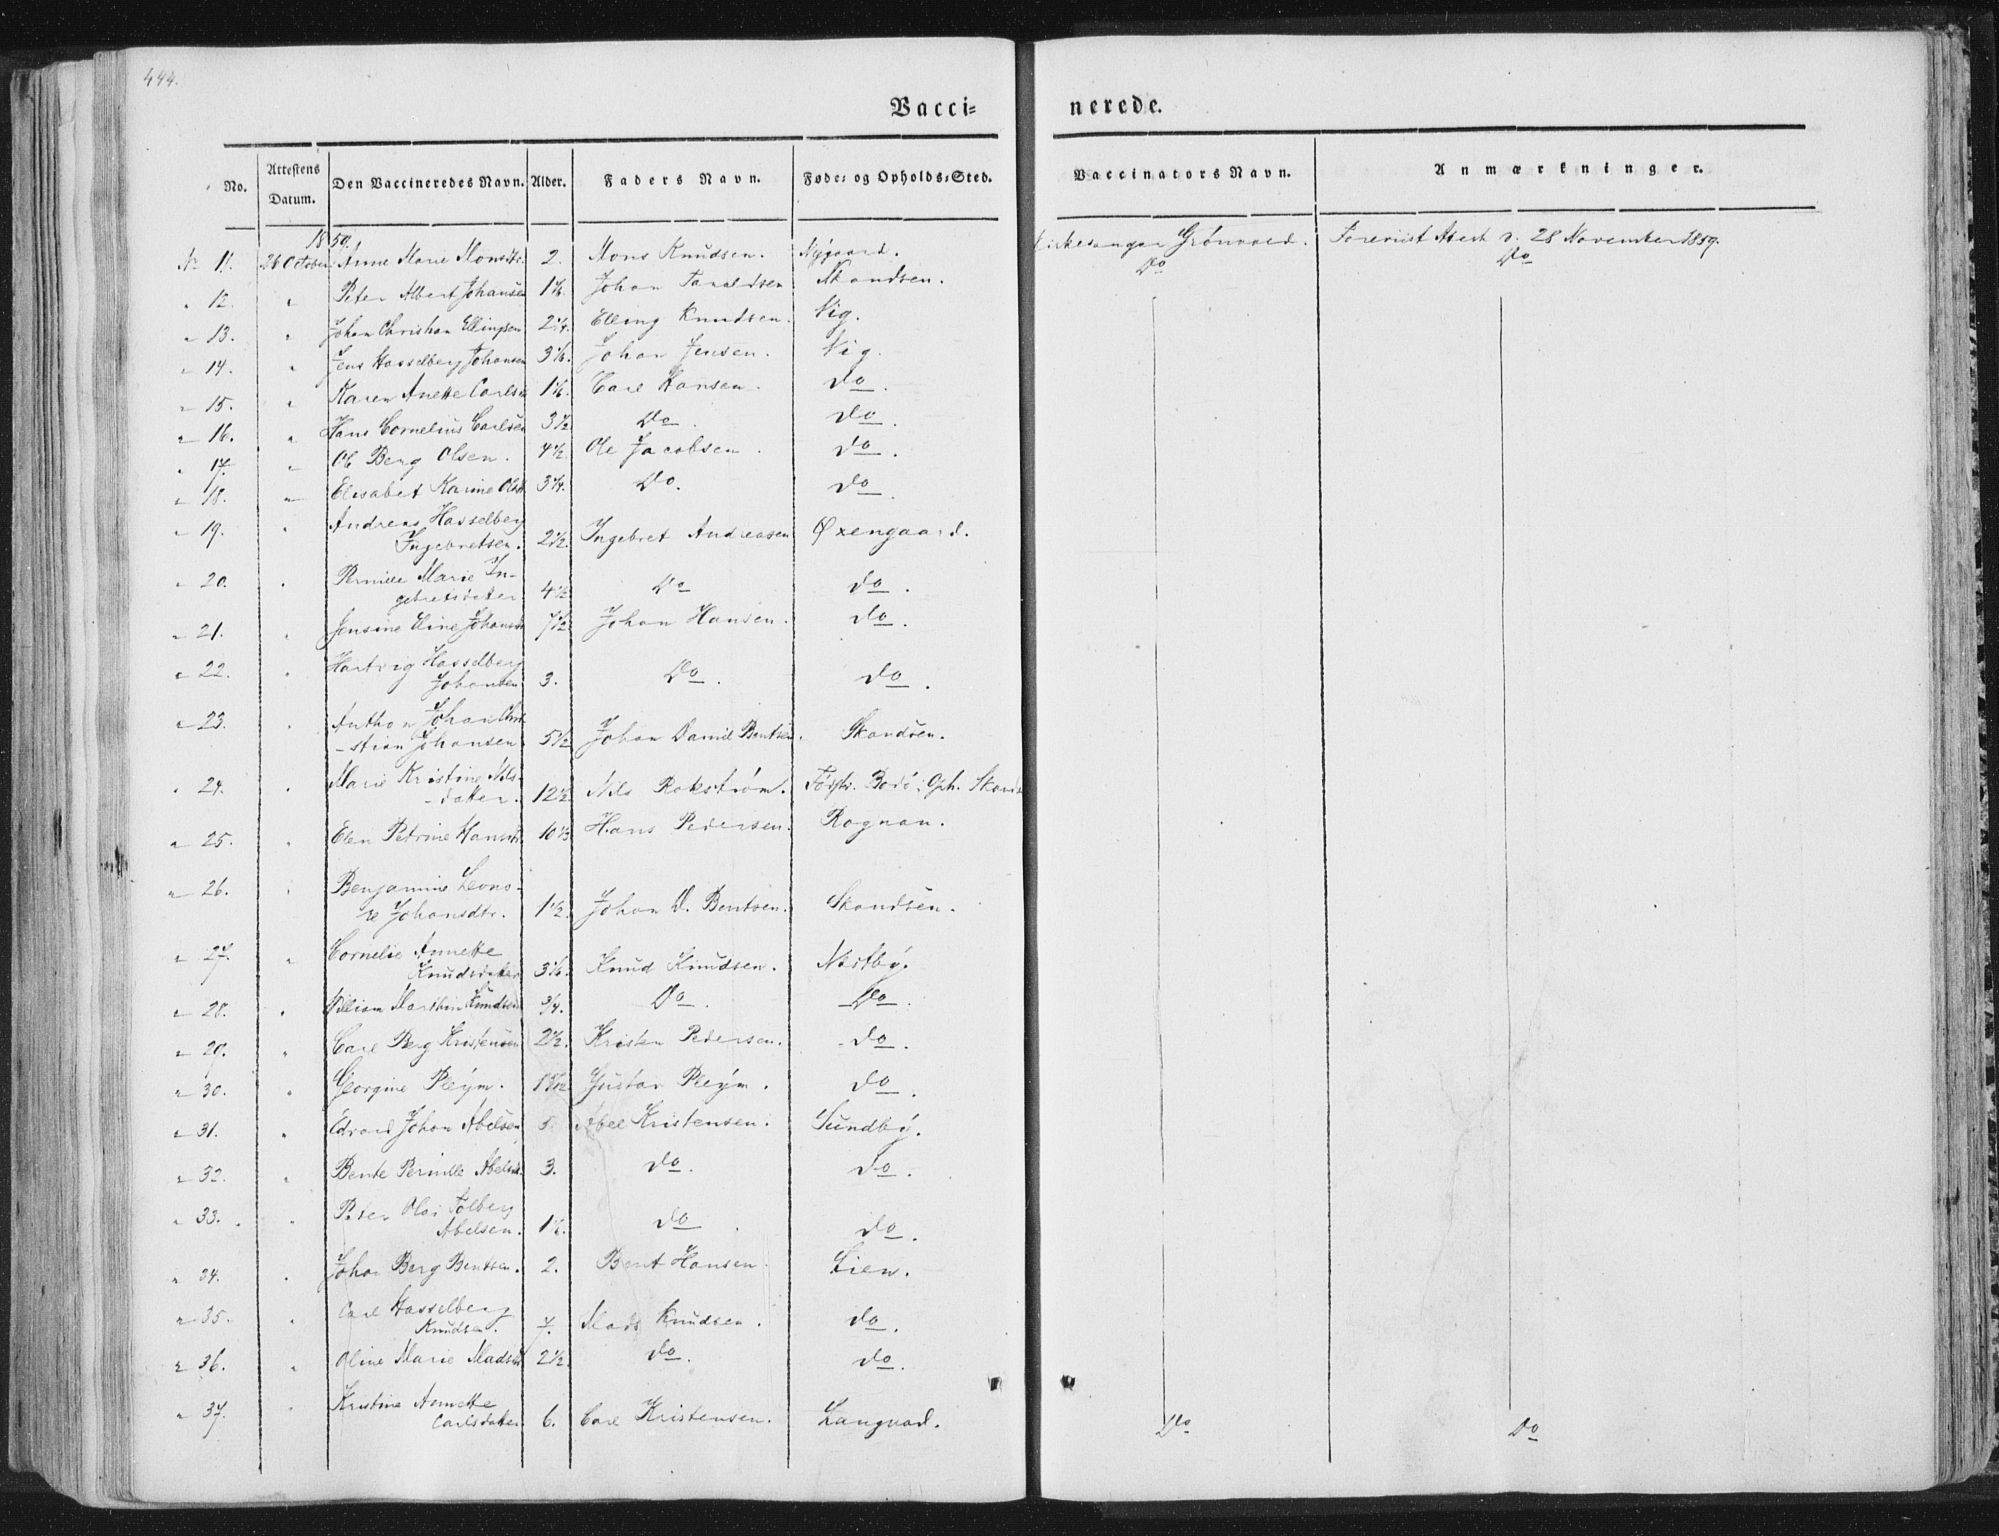 444.
Vacci= nerede.
No. Attestens Datum. Den Vaccineredes Navn. Alder. Faders Navn. Føde= og Opholds=Sted. Vaccinators Navn. Anmærkninger.
1859.
No 11. 26 October Anne Marie Monsdtr. 2. Mons Knudsen. Nygaard. Kirkesanger Grønvold. Foreviist Attest d. 28 November 1859.
" 12. " Peter Albert Johansen 1 1/6. Johan Taraldsen Skandsen. Do Do
" 13. " Johan Christian Ellingsen 2 1/4. Elling Knudsen. Vig.
" 14. " Jens Hasselberg Johansen 3 1/6. Johan Jensen. Vig.
" 15. " Karen Anette Carlsd 1 1/6. Carl Hansen. do.
" 16. " Hans Cornelius Carlsen 3 1/2. Do. do.
" 17. " Ole Berg Olsen. 4 1/2. Ole Jacobsen. do.
" 18. " Elisabet Karine Olsd 3 1/4. Do. do.
" 19. " Andreas Hasselberg
Ingebretsen. 2 1/2. Ingebret Andreasen Øxengaard.
" 20. " Pernille Marie In-
gebretsdatter 4 1/2. Do do.
" 21. " Jensine Eline Johansd 7 1/2. Johan Hansen. do.
" 22. " Hartvig Hasselberg
Johansen 3. Do. do.
" 23. " Anthon Johan Chri-
-stian Johansen. 5 1/2. Johan Daniel Bentsen. Skandsen.
" 24. " Marie Kristine Nils-
-datter. 12 1/2. Nils Rokstrøm. Bodø: Oph. Skands
" 25. " Elen Petrine Hansdtr. 10 1/3. Hans Pedersen. Rognan.
" 26. " Benjamine Leono-
re Johansdtr. 1 1/2. Johan D. Bentsen. Skandsen.
" 27. " Cornelie Annette
Knudsdatter 3 1/6. Knud Knudsen. Nestby.
" 28. " Martin Knudsen 3/4. Do. Do.
" 29. " Carl Berg Kristensen 2 1/2. Kristen Pedersen. do.
" 30. " Georgine Pleym. Gustav Pleym. do.
" 31. " Edvard Johan Abelsen 5. Abel Kristensen. Sundby.
" 32. " Bente Pernille Abelsd. 3. do. Do.
" 33. " Peter Olai Solberg
Abelsen. 1 1/6. do. do.
" 34. " Johan Berg Bentsen. 2. Bent Hansen. Lien.
" 35. " Carl Hasselberg
Knudsen. 7. Mads Knudsen. do.
" 36. " Oline Marie Madsdtr 2 1/2. do. do.
" 37. " Kristine Annette
Carlsdatter 6. Carl Kristensen. Langvad. Do Do